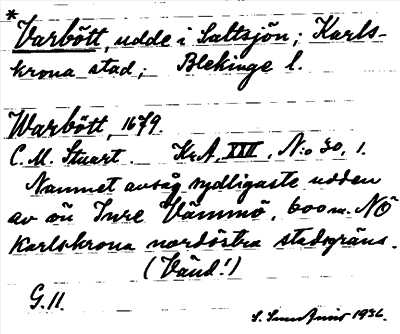 *Varbött, udde i Saltsjön; Karls-
krona stad; Blekinge l.
Warbött, 1679.
C. M. Stuart. KrA, XXX, N:o 30, 1.
Namnet avsåg sydligaste udden
av ön Inre Vämmö, 600 m. NÖ
Karlskrona nordöstra stadsgräns.
(Vänd!)
G. 11.
1936.